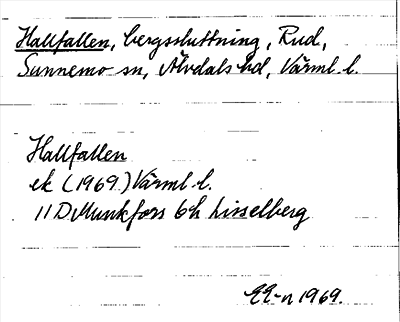 Hallfallen, bergssluttning, Rud,
Sunnemo sn, Älvdals hd, Värml. l.
Hallfallen
ek (1969) Värml. l.
11D Munkfors 6h Lisselberg
EE-n 1969.